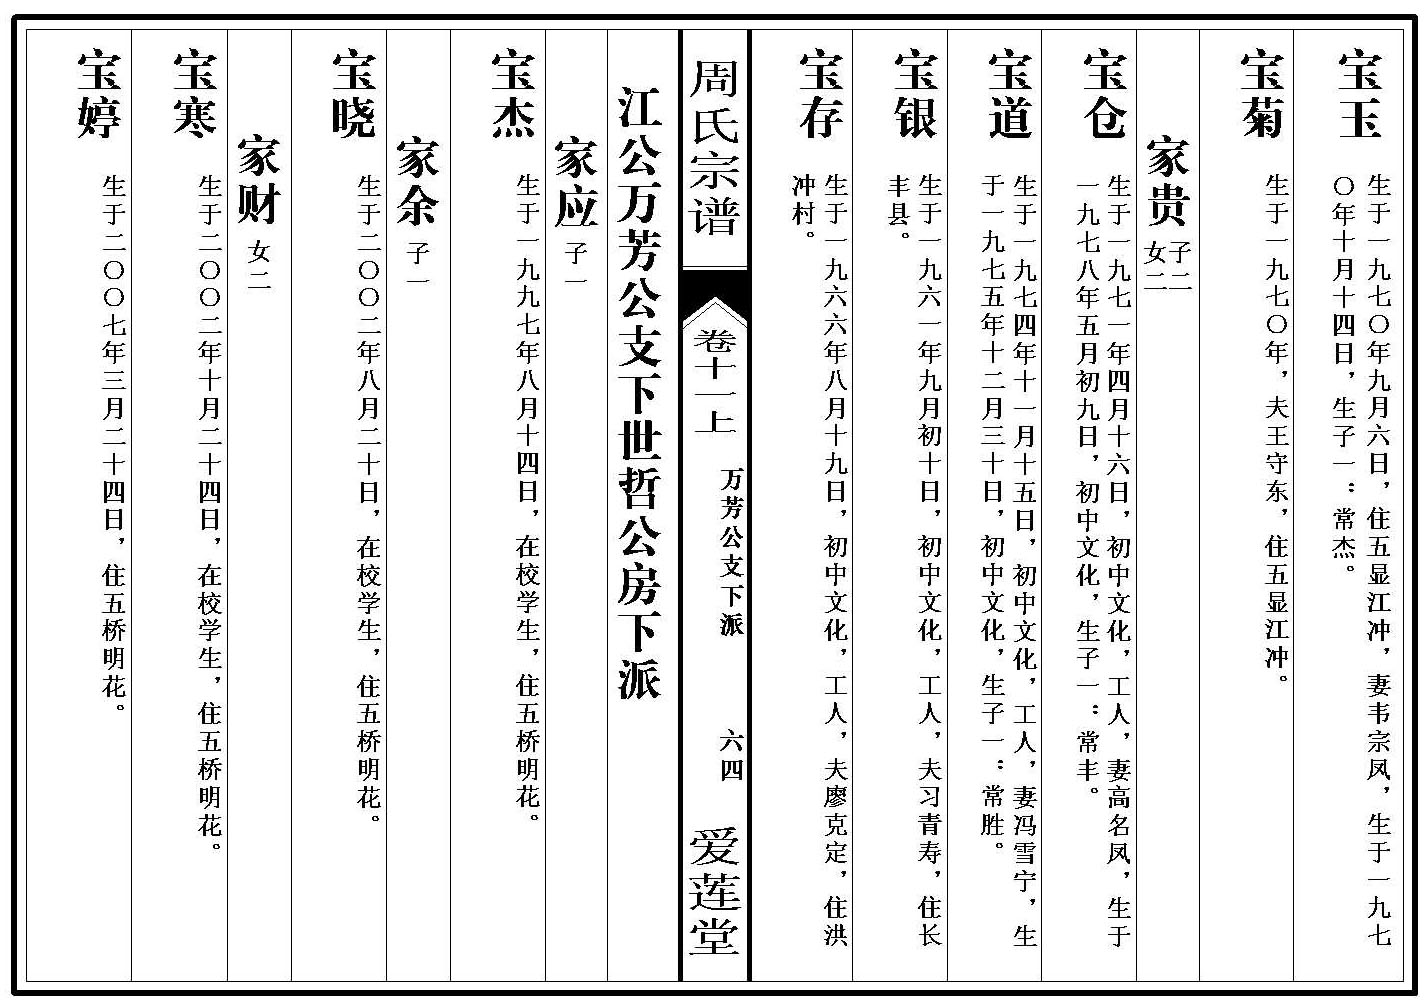 宝玉
生于一九七〇年九月六日，住五显江冲，妻韦宗凤，生于一九七
〇年十月十四日，生子一：常杰。
宝菊
生于一九七〇年，夫王守东，住五显江冲。
家贵
子二
女二
宝仓
生于一九七一年四月十六日，初中文化，工人，妻高名凤，生于
一九七八年五月初九日，初中文化，生子一：常丰。
宝道
生于一九七四年十一月十五日，初中文化，工人，妻冯雪宁，生
于一九七五年十二月三十日，初中文化，生子一：常胜。
宝银
生于一九六一年九月初十日，初中文化，工人，夫习青寿，住长
丰县。
宝存
生于一九六六年八月十九日，初中文化，工人，夫廖克定，住洪
冲村。
周氏宗谱
卷十一上
万芳公支下派
六四
爱莲堂
江公万芳公支下世哲公房下派
家应
子一
宝杰
生于一九九七年八月十四日，在校学生，住五桥明花。
家余
子一
宝晓
生于二〇〇二年八月二十日，在校学生，住五桥明花。
家财
女二
宝寒
生于二〇〇二年十月二十四日，在校学生，住五桥明花。
宝婷
生于二〇〇七年三月二十四日，住五桥明花。